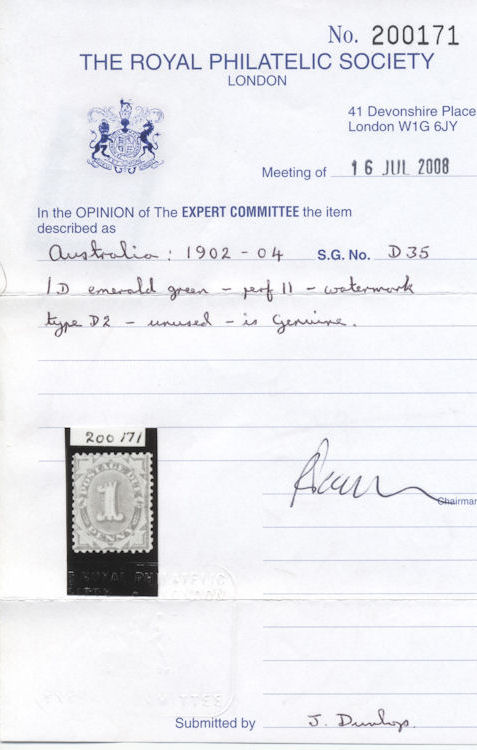 No. 200171
THE ROYAL PHILATELIC SOCIETY
LONDON
41 Devonshire Place
London W1G 6JY
Meeting of 16 JUL 2008
In the OPINION of The EXPERT COMMITTEE the item
described as
Australia: 1902-04 S.G. No. D35
1D emerald green - perf 11 - watermark
type D2 - unused - is Genuine.
200171
POSTAGE DUE
1
PENNY
ROYAL PHILATELIC
Chairman
Submitted by J. Dunlop.